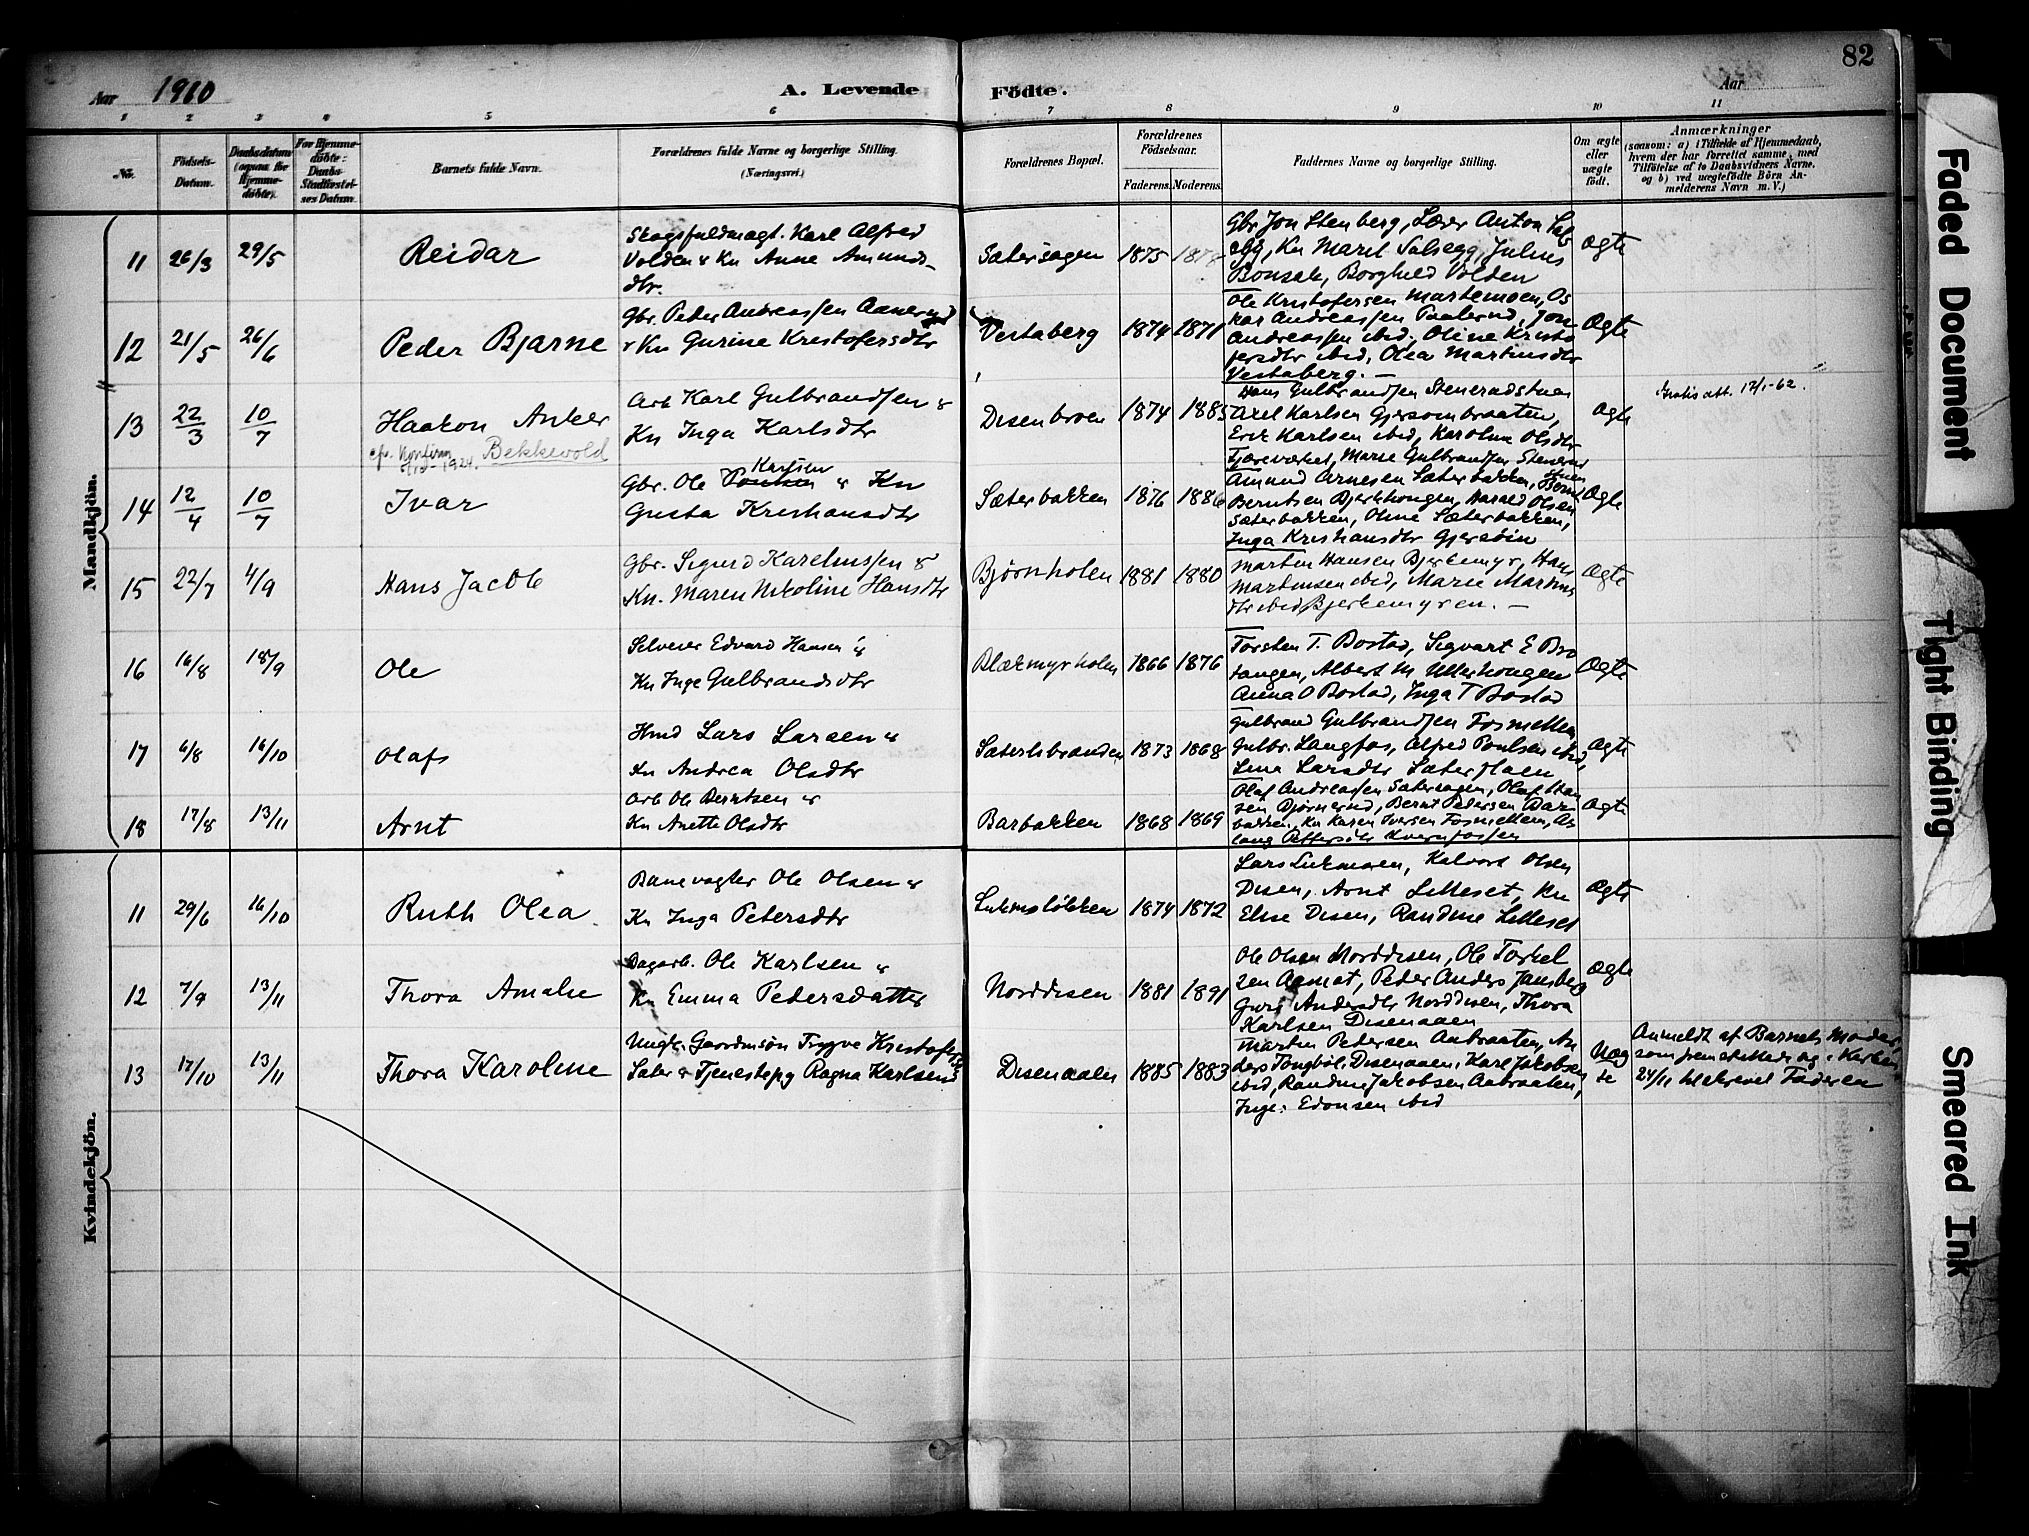 82
Aar 1910
A. Levende Födte.
Aar
1 2 3 4 5 6 7 8 9 10 11
No.
Födsels-Datum.
Daabsdatum (ogsaa for Hjemmedöbte).
For Hjemmedöbte: Daabs-Stadfæstelses Datum.
Barnets fulde Navn.
Forældrenes fulde Navne og borgerlige Stilling. (Næringsvei.)
Forældrenes Bopæl.
Forældrenes Födselsaar.
Faderens. Moderens.
Faddernes Navne og borgerlige Stilling.
Om ægte eller uægte födt.
Anmærkninger
(saasom: a) i Tilfælde af Hjemmedaab,
hvem der har forrettet samme, med
Tilföielse af to Daabsvidners Navne,
og b) ved uægtefödte Börn An-
melderens Navn m. V.)
Mandkjön.
11 26/3 29/5 Reidar
Skogsfuldmagt. Karl Alfred
Volden & Kn Anne Amunds-
dtr.
Sætersagen 1875 1878
Gbr Jon Stenberg, Lærer Anton
Kn Marit Salsegg, Julius
Bonsak, Borghild Volden
Ægte
12 21/5 26/6 Peder Bjarne
Gbr. Peder Andreassen Aanerud
& Kn Gurine Kristofersdtr
Vestaberg 1874 1871
Ole Kristofersen Martemoen, Os
kar Andreassen Jon
Andreassen ibid, Oline Kristo
fersdtr ibid, Olea Martinsdtr
Vestaberg. —
Ægte
13 22/3 10/7 Haakon Anker
Bekkevold
1924.
Arb Karl Gulbrandsen &
Kn Inga Karlsdtr
Disenbroen 1874 1885
Hans Gulbrandsen Steneradstuen
Axel Karlsen Gjersombraaten,
Erik Karlsen ibid, Karoline Olsdtr
Fjæreværket, Marie Gulbrandsen
Ægte
Gratis att. 12/1-62.
14 12/4 10/7 Ivar
Karlsen
Gbr. Ole Poulsen & Kn
Gusta Kristiansdtr
Sæterbakken 1876 1886
Amund Arnesen Sæterbakken,
Berntsen Bjerkhongen, Harald Olsen
Sæterbakken, Oline Sæterbakken,
Inga Kristiansdtr Gjersöien
Ægte
15 22/7 4/9 Hans Jacob
Gbr. Sigurd Karelinssen &
Kn. Maren Nikoline Hansdtr
Bjørnholen 1881 1880
Martin Hansen Bjerkemyr, Hans
Martinsen ibid, Marie Martins
dtr ibid Bjerkemyren. —
Ægte
16 16/8 18/9 Ole
Selveier Edvard Hansen &
Kn Inge Gulbrandsdtr
Blekmyrholen 1866 1876
Torsten T. Bostad, Sigvart E Bro
tangen, Albert M Ullerhongen
Anna O Bostad, Inga T Bostad
Ægte
17 6/8 16/10 Olaf
Hmd Lars Larsen &
Kn Andrea Olsdtr
Sæterlibranden 1873 1868
Gulbrand Gulbrandsen Fosmellem
Gulbr. Langfos, Alfred Poulsen ibid,
Lina Larsdtr Sæterflaen
Ægte
18 17/8 13/11 Arnt
Arb Ole Berntsen &
Kn Anette Olsdtr
Barbakken 1868 1869
Olaf Andreassen Sætersagen, Olaf Han
sen Bjørnerud, Bernt Pedersen Bar-
bakken, Kn Karen Iversen Fosmellem, As
laug Pettersdtr Kvernfossen
Ægte
Kvindekjön.
11 29/6 16/10 Ruth Olea.
Banevogter Ole Olsen &
Kn Inga Petersdtr
1874 1872
Kalvord Olsen
Disen, Arnt Litleset, Kn
Elise Disen, Randine Litleset
Ægte
12 7/9 13/11 Thora Amalie
Dagarb. Ole Karlsen &
Kn Emma Pedersdatter
Norddisen 1881 1891
Ole Olsen Norddisen, Ole Torkel
sen Aamot, Peder Anders Jansberg
Guri Andersdtr Norddisen, Thora
Karlsen Disenaaen
Ægte
13 17/10 13/11 Thora Karoline
Ungk. Gaardmsön Trygve Kristofersen
Sæter & Tjenestepg Ragna Karlsen
Disenaaen 1885 1883
Martin Petersen Aabraaten, An
ders Tongböl, Disenaaen, Karl Jakobsen
ibid, Randine Jakobsen Aabraaten,
Inge. Edonsen ibid
Uæg
te
Anmeldt af Barnets Moder
som fremstillede sig i Kirken
24/11 bl skrevet Faderen
Faded Document
Tight Binding
Smeared Ink